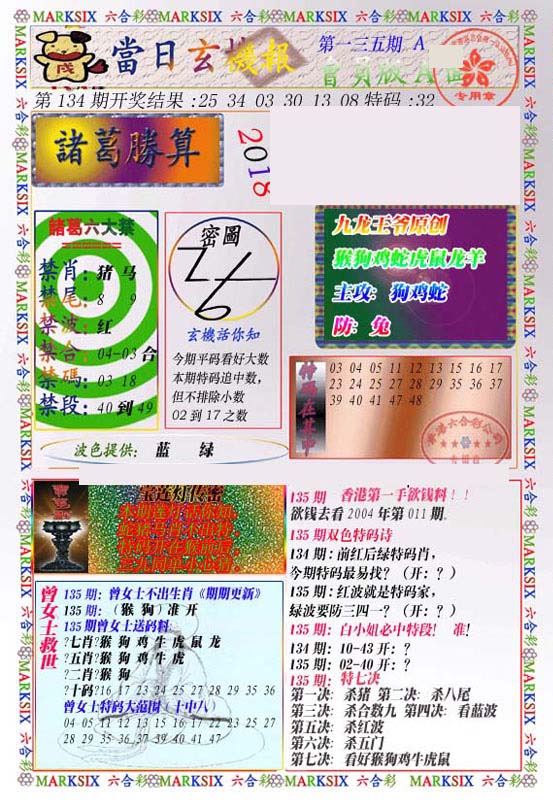 MARKSIX 六合彩 MARKSIX 六合彩 MARKSIX 六合彩 MARKSIX 六合彩
當日玄機報
第一三五期 A
會員版
专用章
第 134 期开奖结果 :25 34 03 30 13 08 特码 :32
諸葛勝算
2018
諸葛六大禁
禁肖: 猪 马
禁尾: 8 9
禁波: 红
禁合: 04-03 合
禁碼: 03 18
禁段: 40 到 49
密圖
玄機話你知
今期平码看好大数
本期特码追中数,
但不排除小数
02 到 17 之数
波色提供: 蓝 绿
九龙王爷原创
猴狗鸡蛇虎鼠龙羊
主攻: 狗鸡蛇
防: 兔
特码在其中
03 04 05 11 12 13 15 16 17
23 24 25 27 28 29 35 36 37
39 40 41 47 48
宝莲灯传密
曾女士救世
135 期: 曾女士不出生肖《期期更新》
135 期: (猴 狗) 准 开
135 期曾女士送码料:
?七肖?猴 狗 鸡 牛 虎 鼠 龙
?五肖?猴 狗 鸡 牛 虎
?二肖?猴 狗
?十码?16 17 23 24 25 27 28 29 35 36
曾女士特码大范围 (十中八)
04 05 11 12 13 15 16 17 22 23 25 27
28 29 35 36 37 39 40 41 47
135 期 香港第一手欲钱料!!
欲钱去看 2004 年第 011 期.
135 期双色特码诗
134 期: 前红后绿特码肖,
今期特码最易找? (开: ? )
135 期: 红波就是特码家,
绿波要防三四一? (开: ? )
135 期: 白小姐必中特段! 准!
134 期: 10-43 开: ?
135 期: 02-40 开: ?
135 期: 特七决
第一决: 杀猪 第二决: 杀八尾
第三决: 杀合数九 第四决: 看蓝波
第五决: 杀红波
第六决: 杀五门
第七决: 看好猴狗鸡牛虎鼠
MARKSIX 六合彩 MARKSIX 六合彩 MARKSIX 六合彩 MARKSIX 六合彩